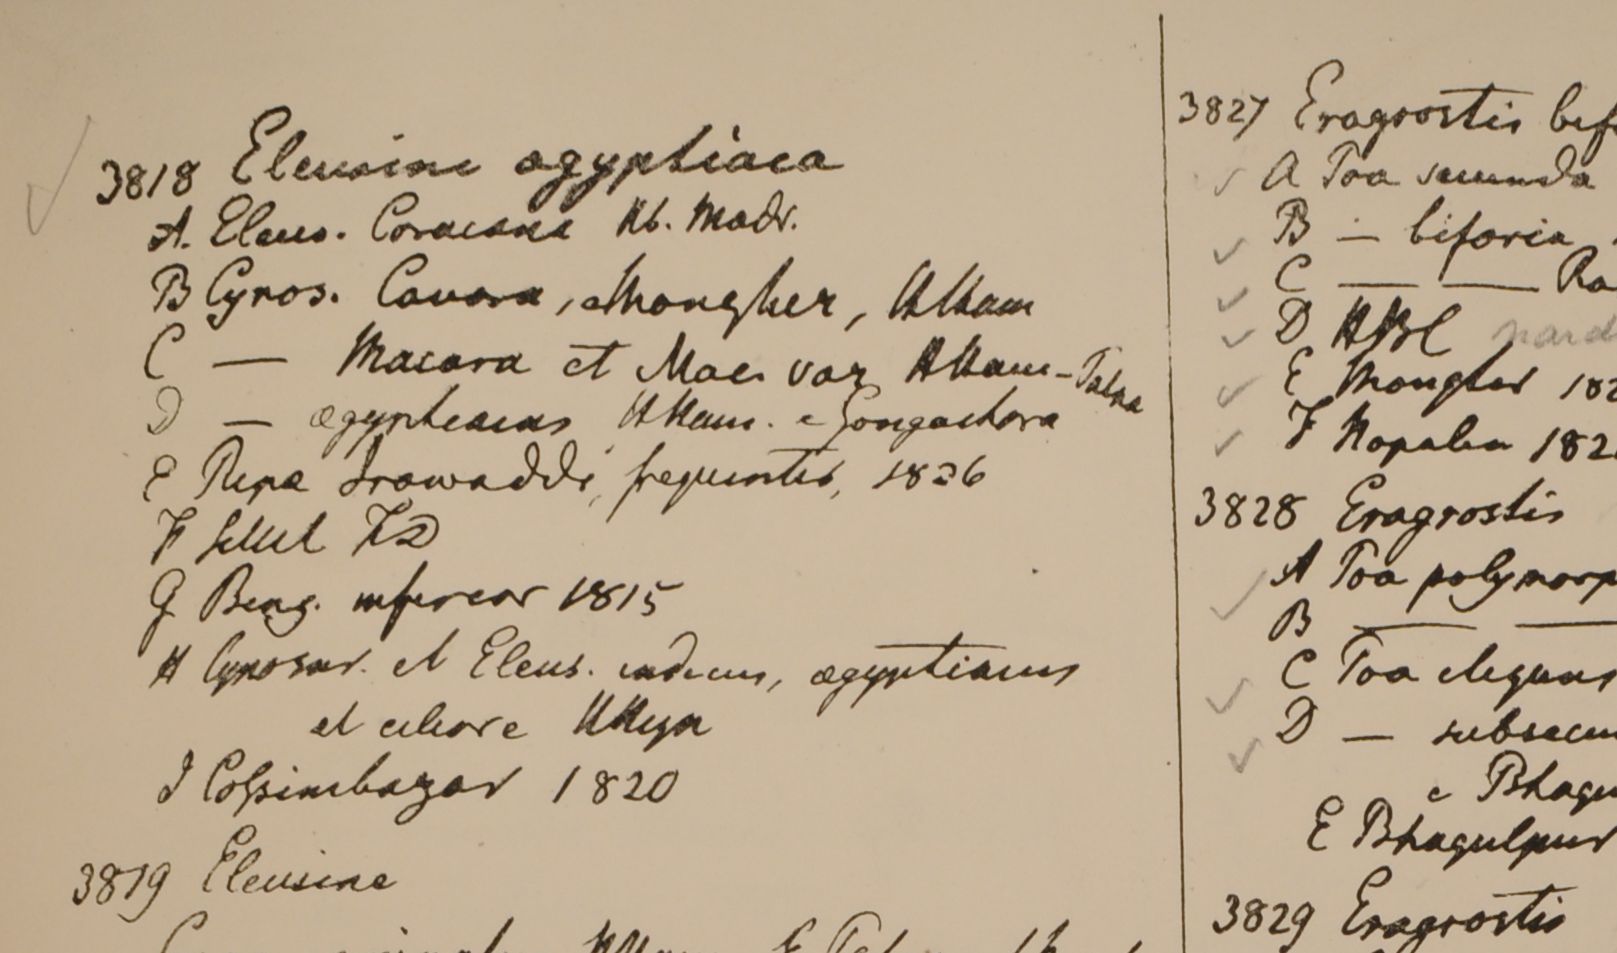 3818 Eleusine ægyptiaca
A. Eleus. Coracana Hb. Madr.
B Cynos. Cavara, Mongher, HHam
C — Macara et Mac. var HHam-
D — ægyptiacus HHam. e Gongachora
E Ripa Irawaddi, frequentis, 1826
F Sillet FD
G Beng. inferior 1815
H Cynosur. et Eleus. indicus, ægyptiacus
et HHeyn
I Cossimbazar 1820
3819 Eleusine
3827 Eragrostis bif
A Poa secunda
B — bifaria
C — — Ro
D HBC
E Mongher 182
F Napalia 182
3828 Eragrostis
A Poa polymorp
B — —
C Poa elegans
D — subsecun
e Bhagu
E Bhagulpur
3829 Eragrostis